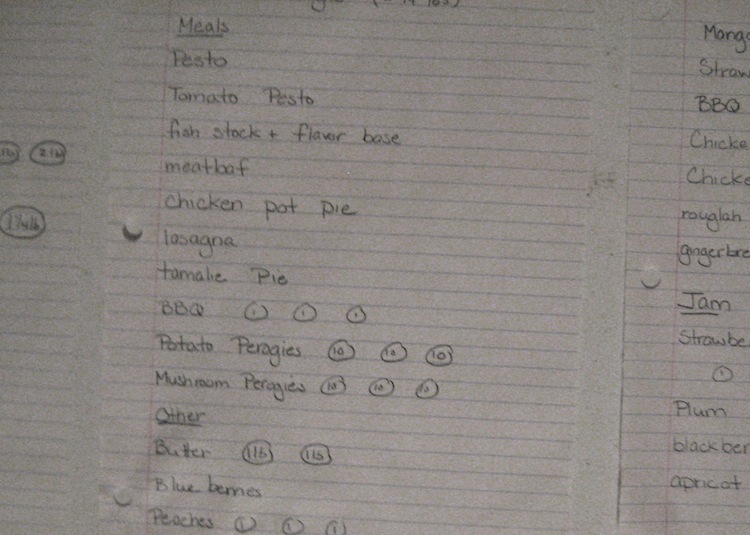 21b
1¾lb
Meals
Pesto
Tomato Pesto
fish stock + flavor base
meatloaf
Chicken pot pie
lasagna
tamalie Pie
BBQ 1 1 1
Potato Perogies 10 10 10
Mushroom Perogies 10 10 10
Other
Butter 1lb 1lb
Blueberries
Peaches 1 1 1
Mang
Straw
BBQ
Chicke
Chicke
rouglah
gingerbre
Jam
Strawbe
1
Plum
blackber
apricot